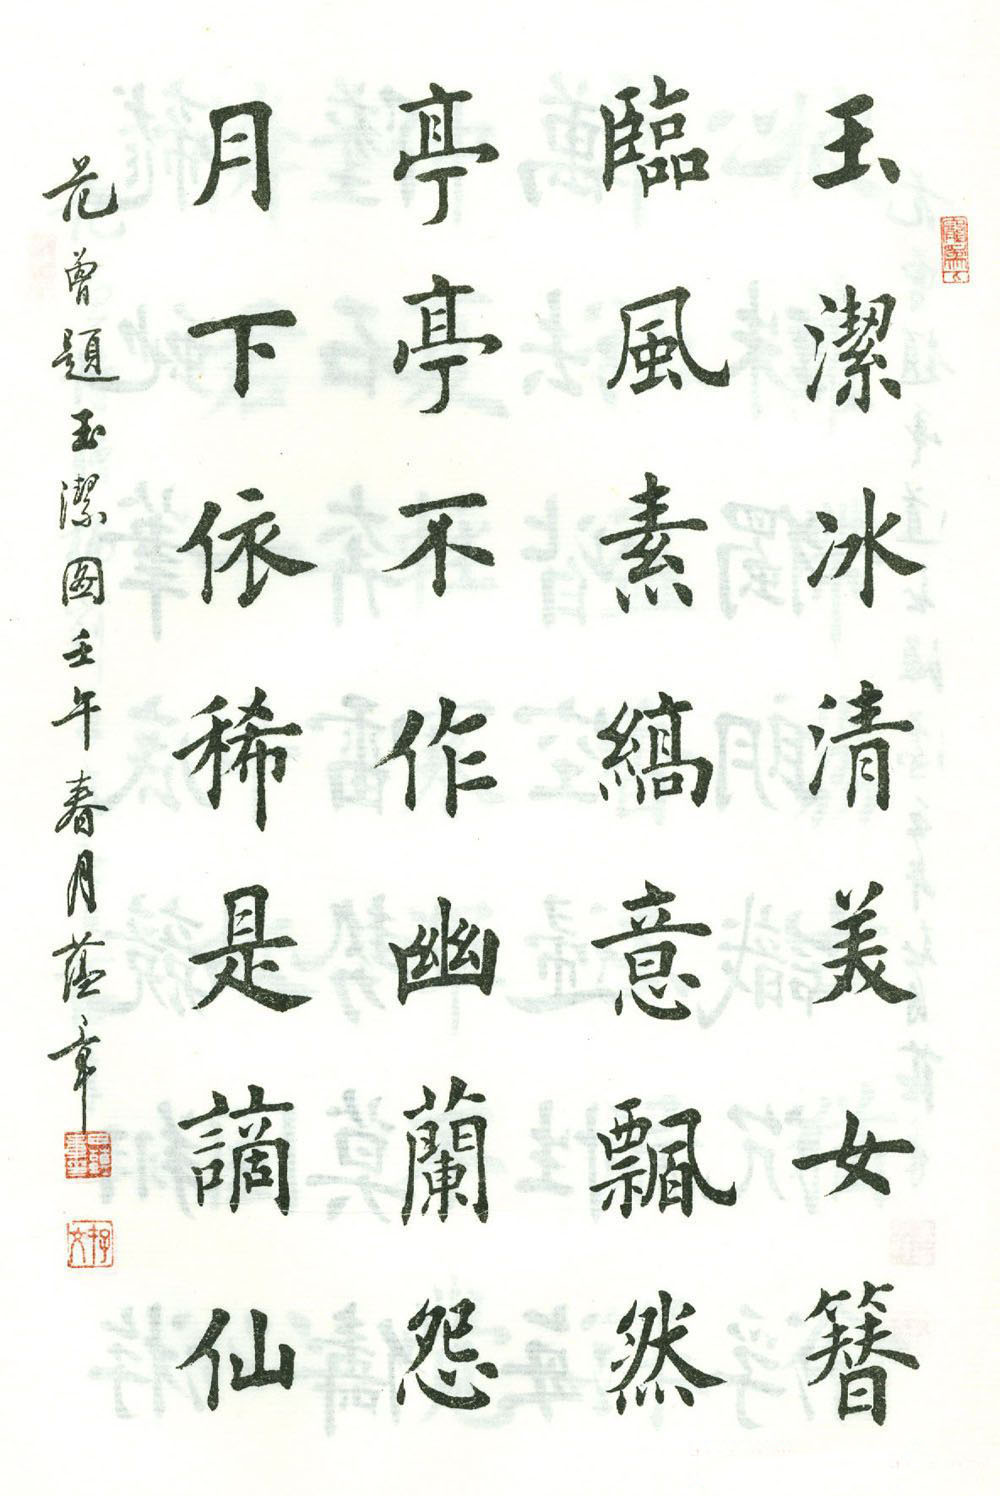 玉潔冰清美女簪
臨風素縞意飄然
亭亭不作幽蘭怨
月下依稀是謫仙
范曾題玉潔圖壬午春月蘊章